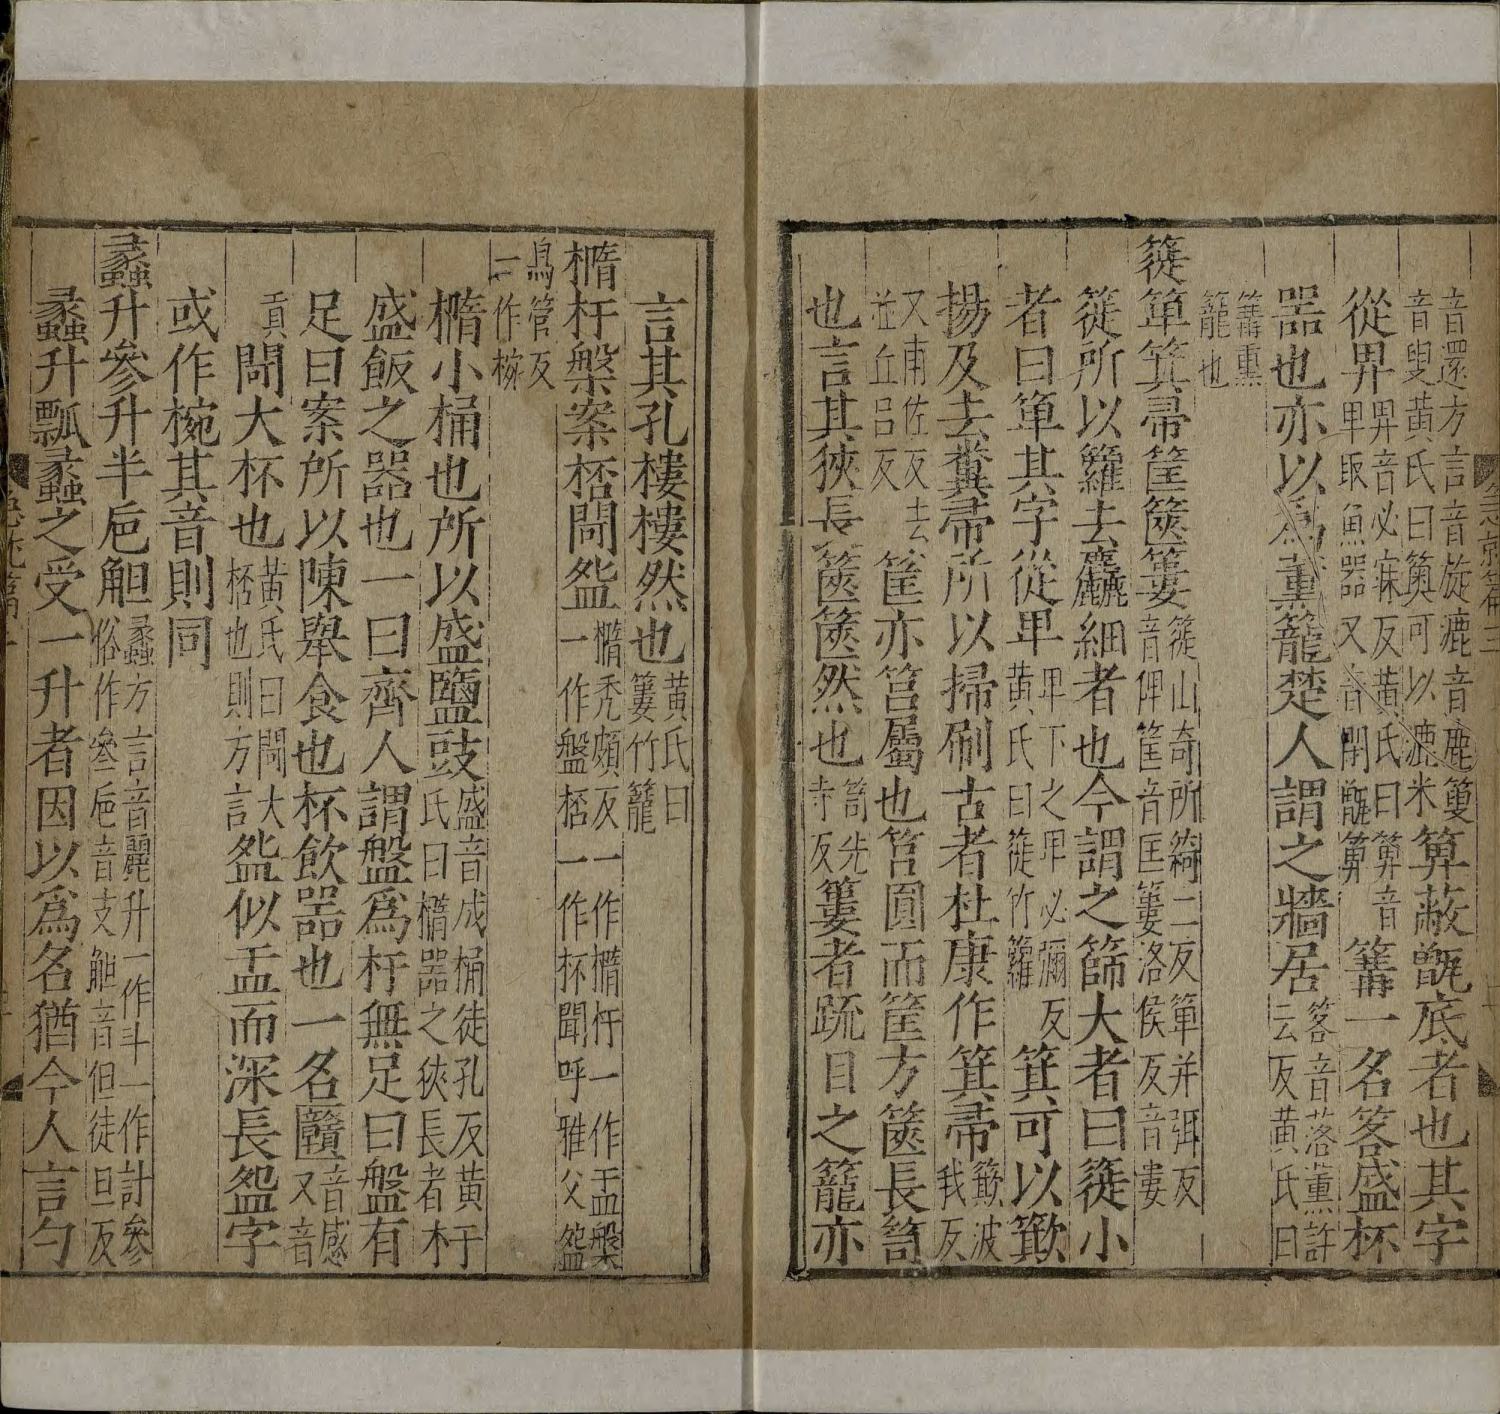 音還方言音旋漉音鹿䉛
音叟黃氏曰籅可以漉米
箅蔽甑底者也其字
從畀
畀音必寐反黃氏曰箅音
甲取魚器又音閉甑箅
篝一名笿盛杯
器也亦以為薰籠楚人謂之牆居
笿音落薰許
云反黃氏曰
篝熏
籠也
簁箄箕帚筐篋簍
簁山奇所綺二反箄并弭反
音俾筐音匡簍洛侯反音婁
簁所以籮去麤細者也今謂之篩大者曰簁小
者曰箄其字從卑
卑下之卑必彌反
黃氏曰簁竹籮
箕可以簸
揚及去糞帚所以掃刷古者杜康作箕帚
簸波
我反
又甫佐反去
並丘呂反
筐亦筥屬也筥圓而筐方篋長笥
也言其狹長篋篋然也
笥先
寺反
簍者疏目之籠亦
言其孔樓樓然也
黃氏曰
簍竹籠
橢杅槃案桮閜㿿
橢禿頗反一作㯐杅一作盂槃
一作盤桮一作杯閜呼雅父㿿
烏管反
二作椀
橢小桶也所以盛鹽豉
盛音成桶徒孔反黃
氏曰橢器之狹長者杅
盛飯之器也一曰齊人謂盤為杅無足曰盤有
足曰案所以陳舉食也杯飲器也一名㔶
音感
又音
貢
閜大杯也
黃氏曰閜大
桮也則方言
㿿似盂而深長㿿字
或作椀其音則同
蠡升參升半卮觛
蠡方言音麗升一作斗一作計參
俗作叅卮音支觛音但徒旦反
蠡升瓢蠡之受一升者因以為名猶今人言勺
急就篇三